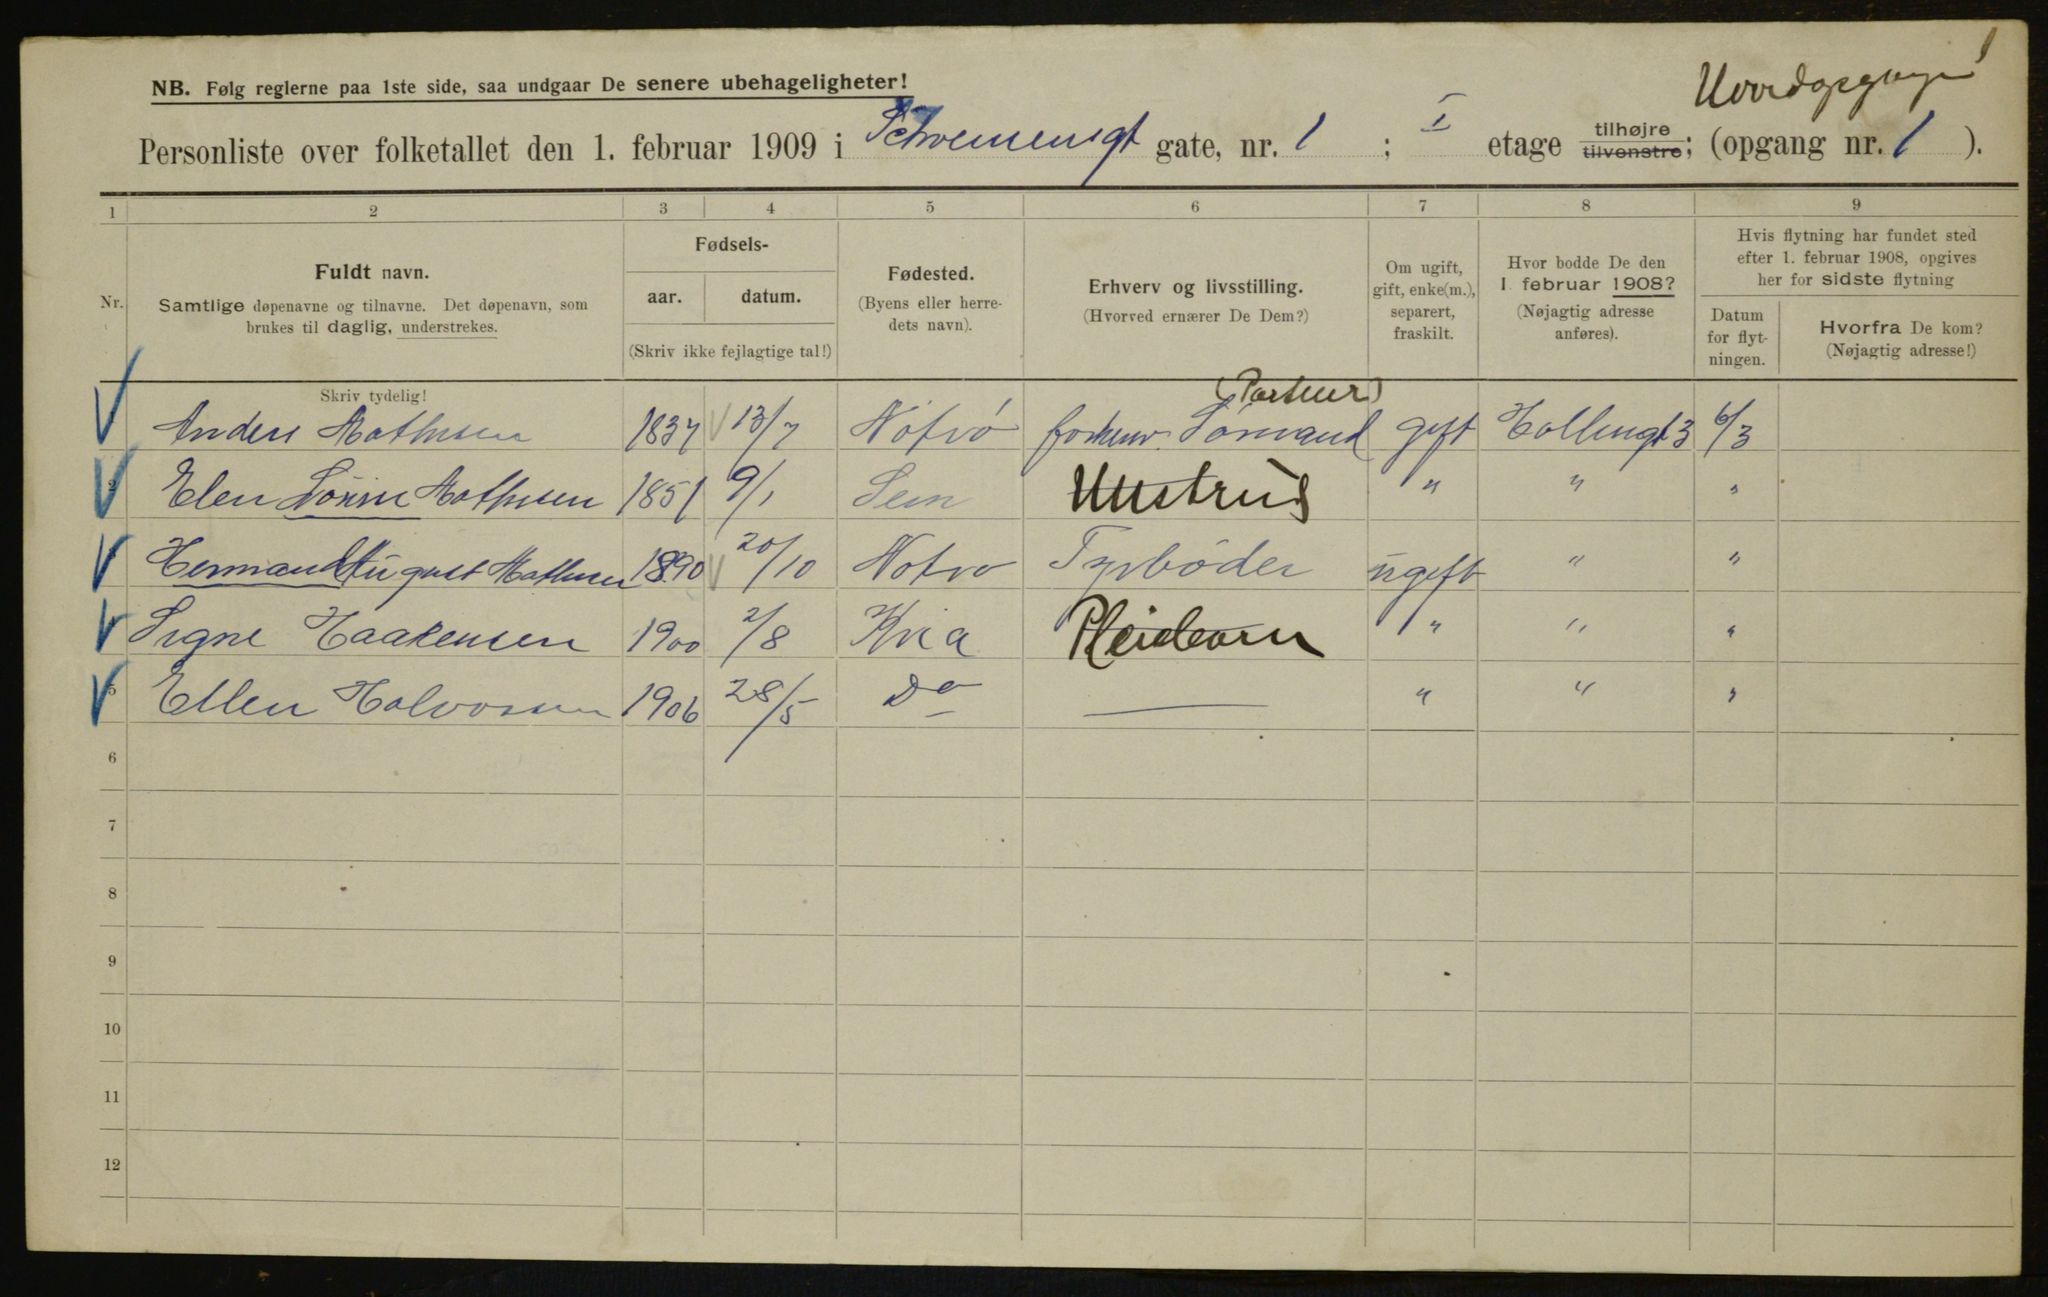 NB. Følg reglerne paa 1ste side, saa undgaar De senere ubehageligheter!
Personliste over folketallet den 1. februar 1909 i Schwensensgt gate, nr. 1 ; I etage tilhøjre tilvenstre; (opgang nr. 1 ).
1 2 3 4 5 6 7 8 9
Nr.
Fuldt navn.
Samtlige døpenavne og tilnavne. Det døpenavn, som
brukes til daglig, understrekes.
Skriv tydelig!
Fødsels-
aar. datum.
(Skriv ikke fejlagtige tal!)
Fødested.
(Byens eller herre-
dets navn).
Erhverv og livsstilling.
(Hvorved ernærer De Dem?)
Om ugift,
gift, enke(m.),
separert,
fraskilt.
Hvor bodde De den
1. februar 1908?
(Nøjagtig adresse
anføres).
Hvis flytning har fundet sted
efter 1. februar 1908, opgives
her for sidste flytning
Datum
for flyt-
ningen.
Hvorfra De kom?
(Nøjagtig adresse!)
Anders Mathisen 1837 13/7 Nötrö Sömand gift 3 6/3
2 Elen Mathisen 1851 9/1 Sem Hustru " " "
Herman August Mathisen 1890 20/10 Notrö ugift " "
Signe Haakensen 1900 2/8 Kria Pleiebarn " " "
5 Ellen Halvorsen 1906 28/5 Do — " " "
6
7
8
9
10
11
12